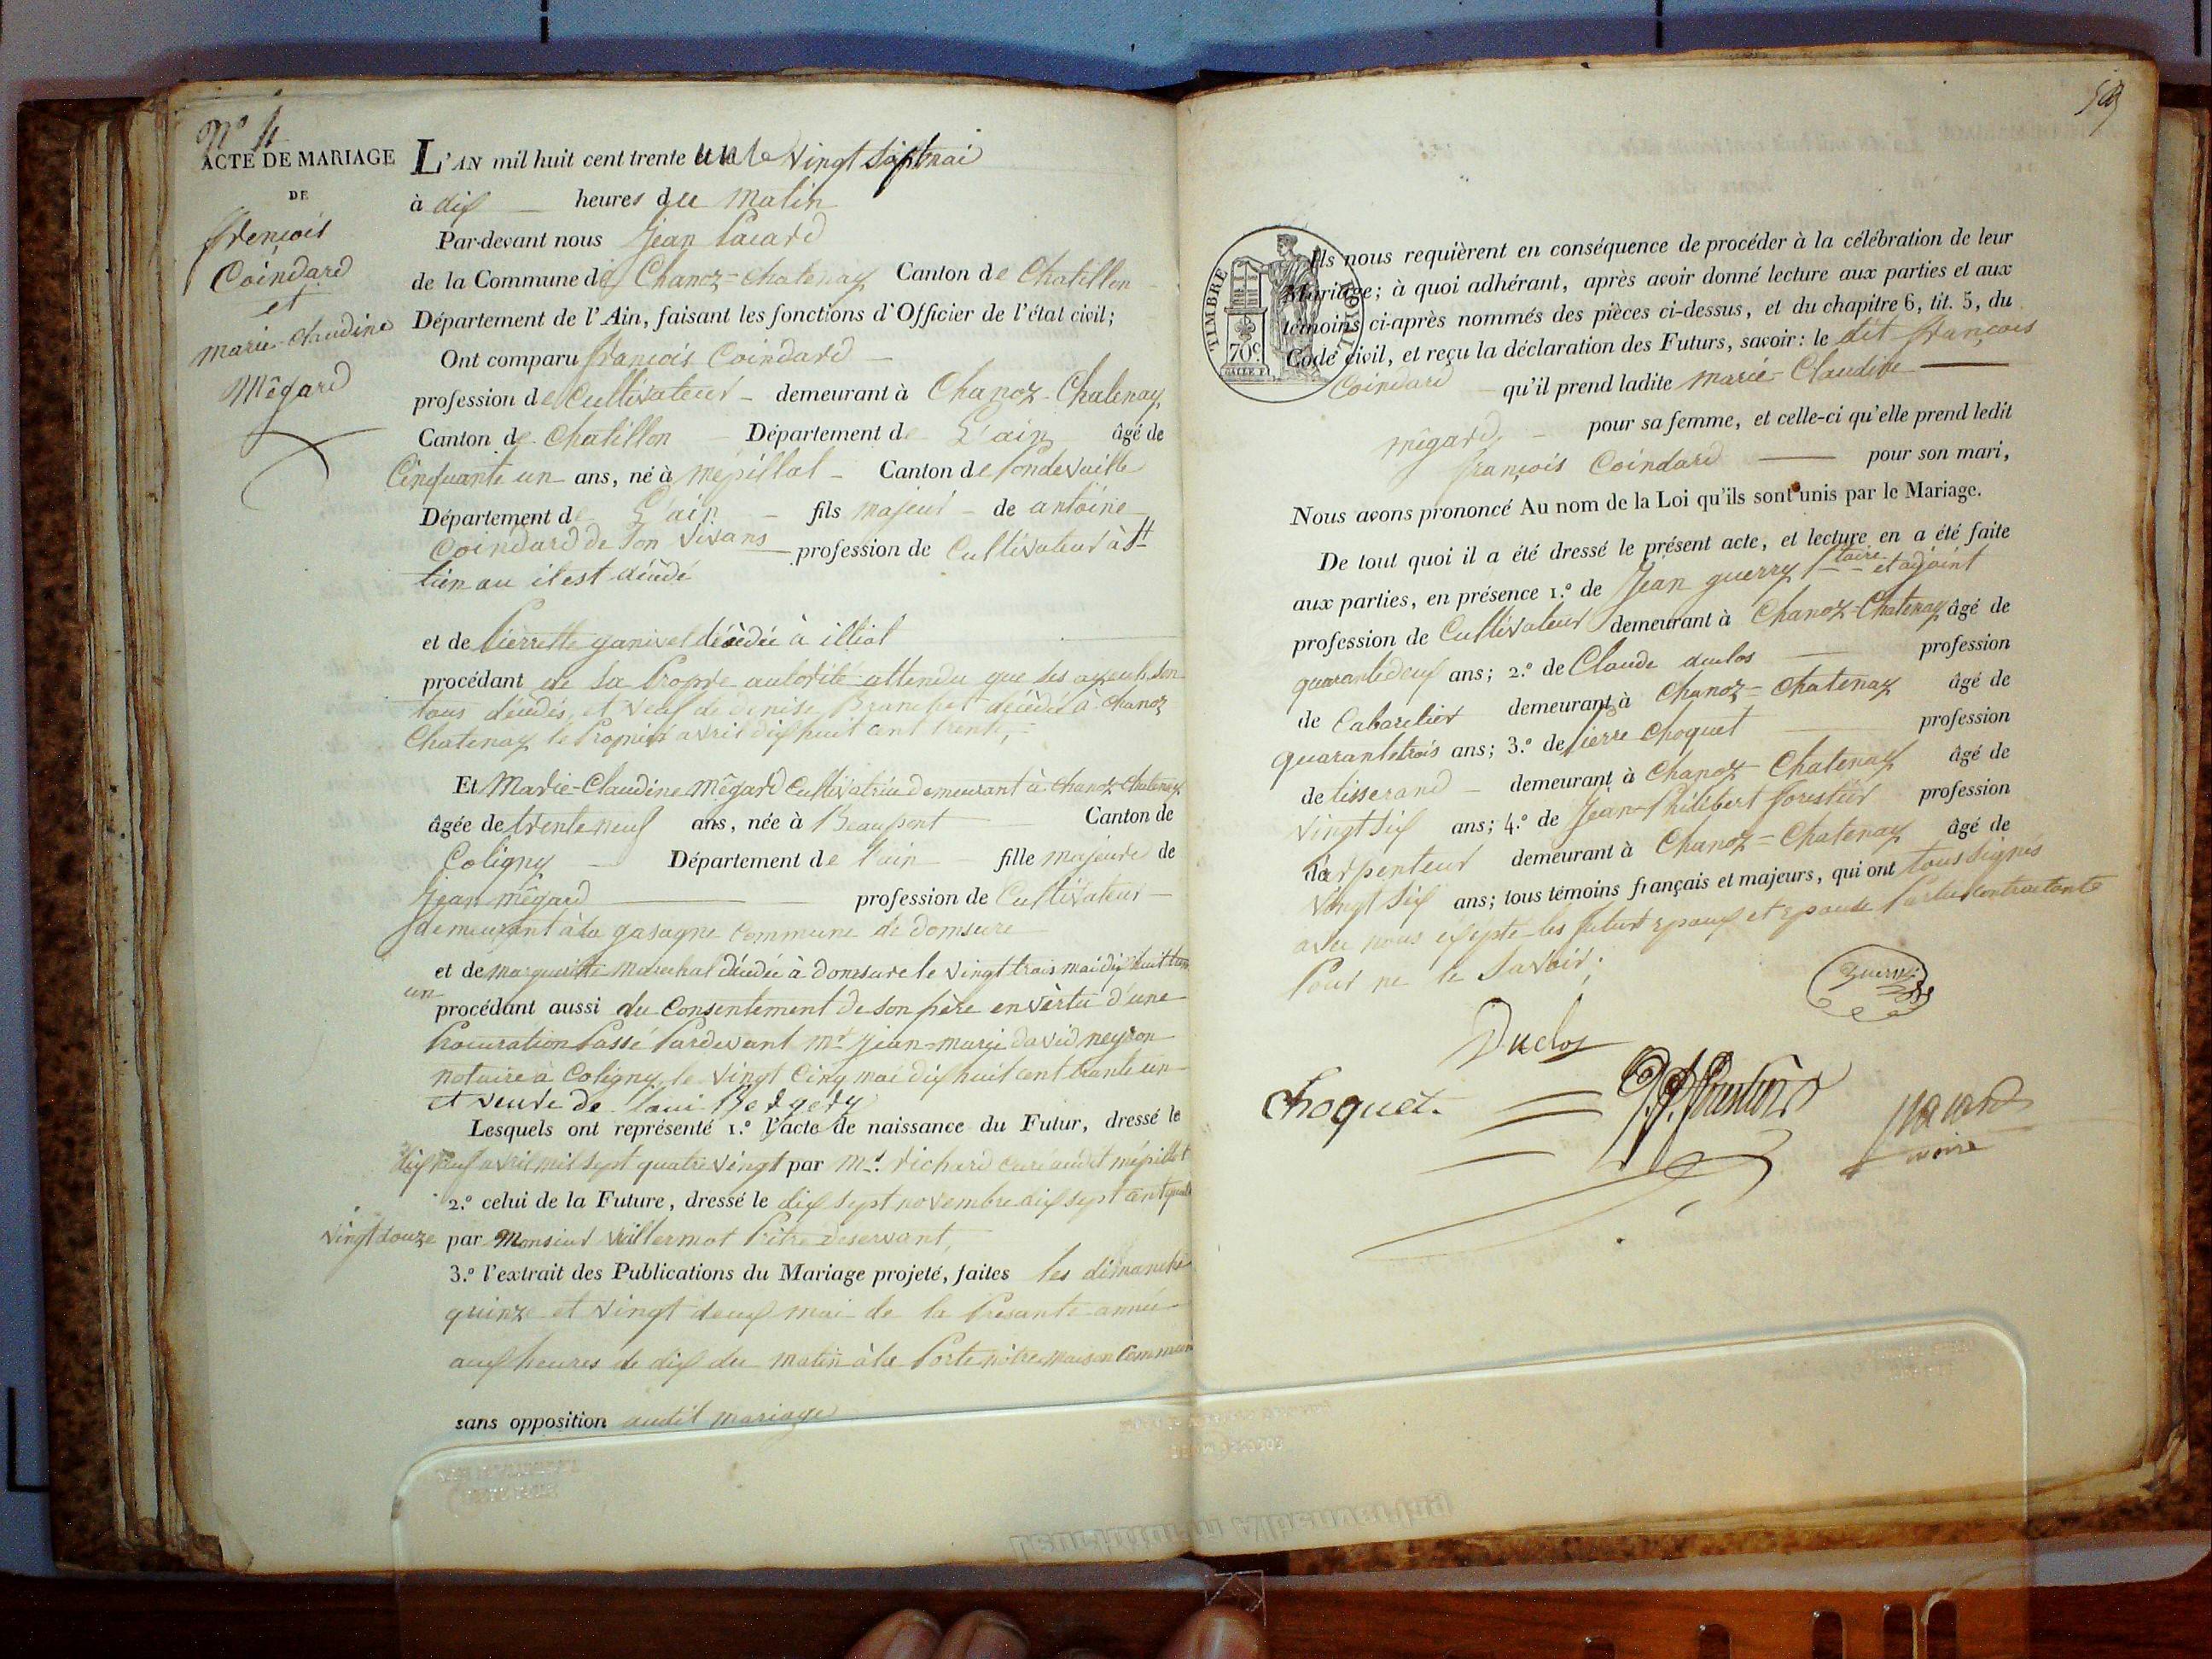 N° 4
ACTE DE MARIAGE
DE
françois
Coindard
et
marie-Claudine
Mégard
L'AN mil huit cent trente un le vingt sept mai
à dix heures du matin
Par-devant nous Jean Pacard
de la Commune de Chanoz=Chatenay Canton de Chatillon
Département de l'Ain, faisant les fonctions d'Officier de l'état civil;
Ont comparu françois Coindard
profession de Cultivateur demeurant à Chanoz-Chatenay
Canton de Chatillon Département de L'ain âgé de
Cinquante un ans, né à mépillat Canton de Pondevaille
Département de L'ain fils majeur de antoine
Coindard de son vivans profession de Cultivateur à St
tien au il est décédé
et de Pierrette ganivet décédée à illiat
procédant de sa Propre autorité attendu que ses ayeuls son
tous décédés, et veuf de denise Branchet décédée à Chanoz
Chatenay le Promier avril dix huit cent trente,
Et Marie-Claudine Mégard Cultivatrice demeurant à Chanoz-Chatenay
âgée de trente neuf ans, née à Beaupont Canton de
Coligny Département de l'ain fille majeure de
Jean mégard profession de Cultivateur
demeurant à la gasagne Commune de domsure
et de marguerite marechal décédée à domsure le vingt trois mai dix huit
un
procédant aussi du Consentement de son père en vértu d'une
Procuration Passé Pardevant Mr Jean=marie david neyron
notaire à Coligny le vingt Cinq mai dix huit cent trante un
et veuve de loui Bergery
Lesquels ont représenté 1.° l'acte de naissance du Futur, dressé le
dix neuf avril mil sept quatre vingt par Mr. richard curé audit mépillat
2.° celui de la Future, dressé le dix sept novembre dix sept cent quatre
vingt douze par Monsieur vuillermot Prêtre deservant
3.° l'extrait des Publications du Mariage projeté, faites les dimanche
quinze et vingt deux mai de la Présante année
aux heures de dix du matin à la Porte nôtre maison Commune
sans opposition audit mariage
59
TIMBRE ROYAL
70c
Ils nous requièrent en conséquence de procéder à la célébration de leur
Mariage; à quoi adhérant, après avoir donné lecture aux parties et aux
témoins ci-après nommés des pièces ci-dessus, et du chapitre 6, tit. 5, du
Code civil, et reçu la déclaration des Futurs, savoir: le dit françois
Coindard qu'il prend ladite marie-Claudine
mégard, pour sa femme, et celle-ci qu'elle prend ledit
françois Coindard pour son mari,
Nous avons prononcé Au nom de la Loi qu'ils sont unis par le Mariage.
De tout quoi il a été dressé le présent acte, et lecture en a été faite
aux parties, en présence 1.° de Jean guerry et adjoint
profession de Cultivateur demeurant à Chanoz-Chatenay âgé de
quarante deux ans; 2.° de Claude duclos profession
de Cabaretier demeurant à Chanoz=Chatenay âgé de
quarante trois ans; 3.° de Pierre Choquet profession
de tisserand demeurant à Chanoz-Chatenay âgé de
vingt six ans; 4.° de Jean-Philibert forestier profession
d'arpenteur demeurant à Chanoz=Chatenay âgé de
vingt six ans; tous témoins français et majeurs, qui ont tous signés
avec nous exepté les futurs epoux et epouse Partie Contractante
Pour ne le savoir;
Guerry
Duclos
Choquet.
Pacard
maire